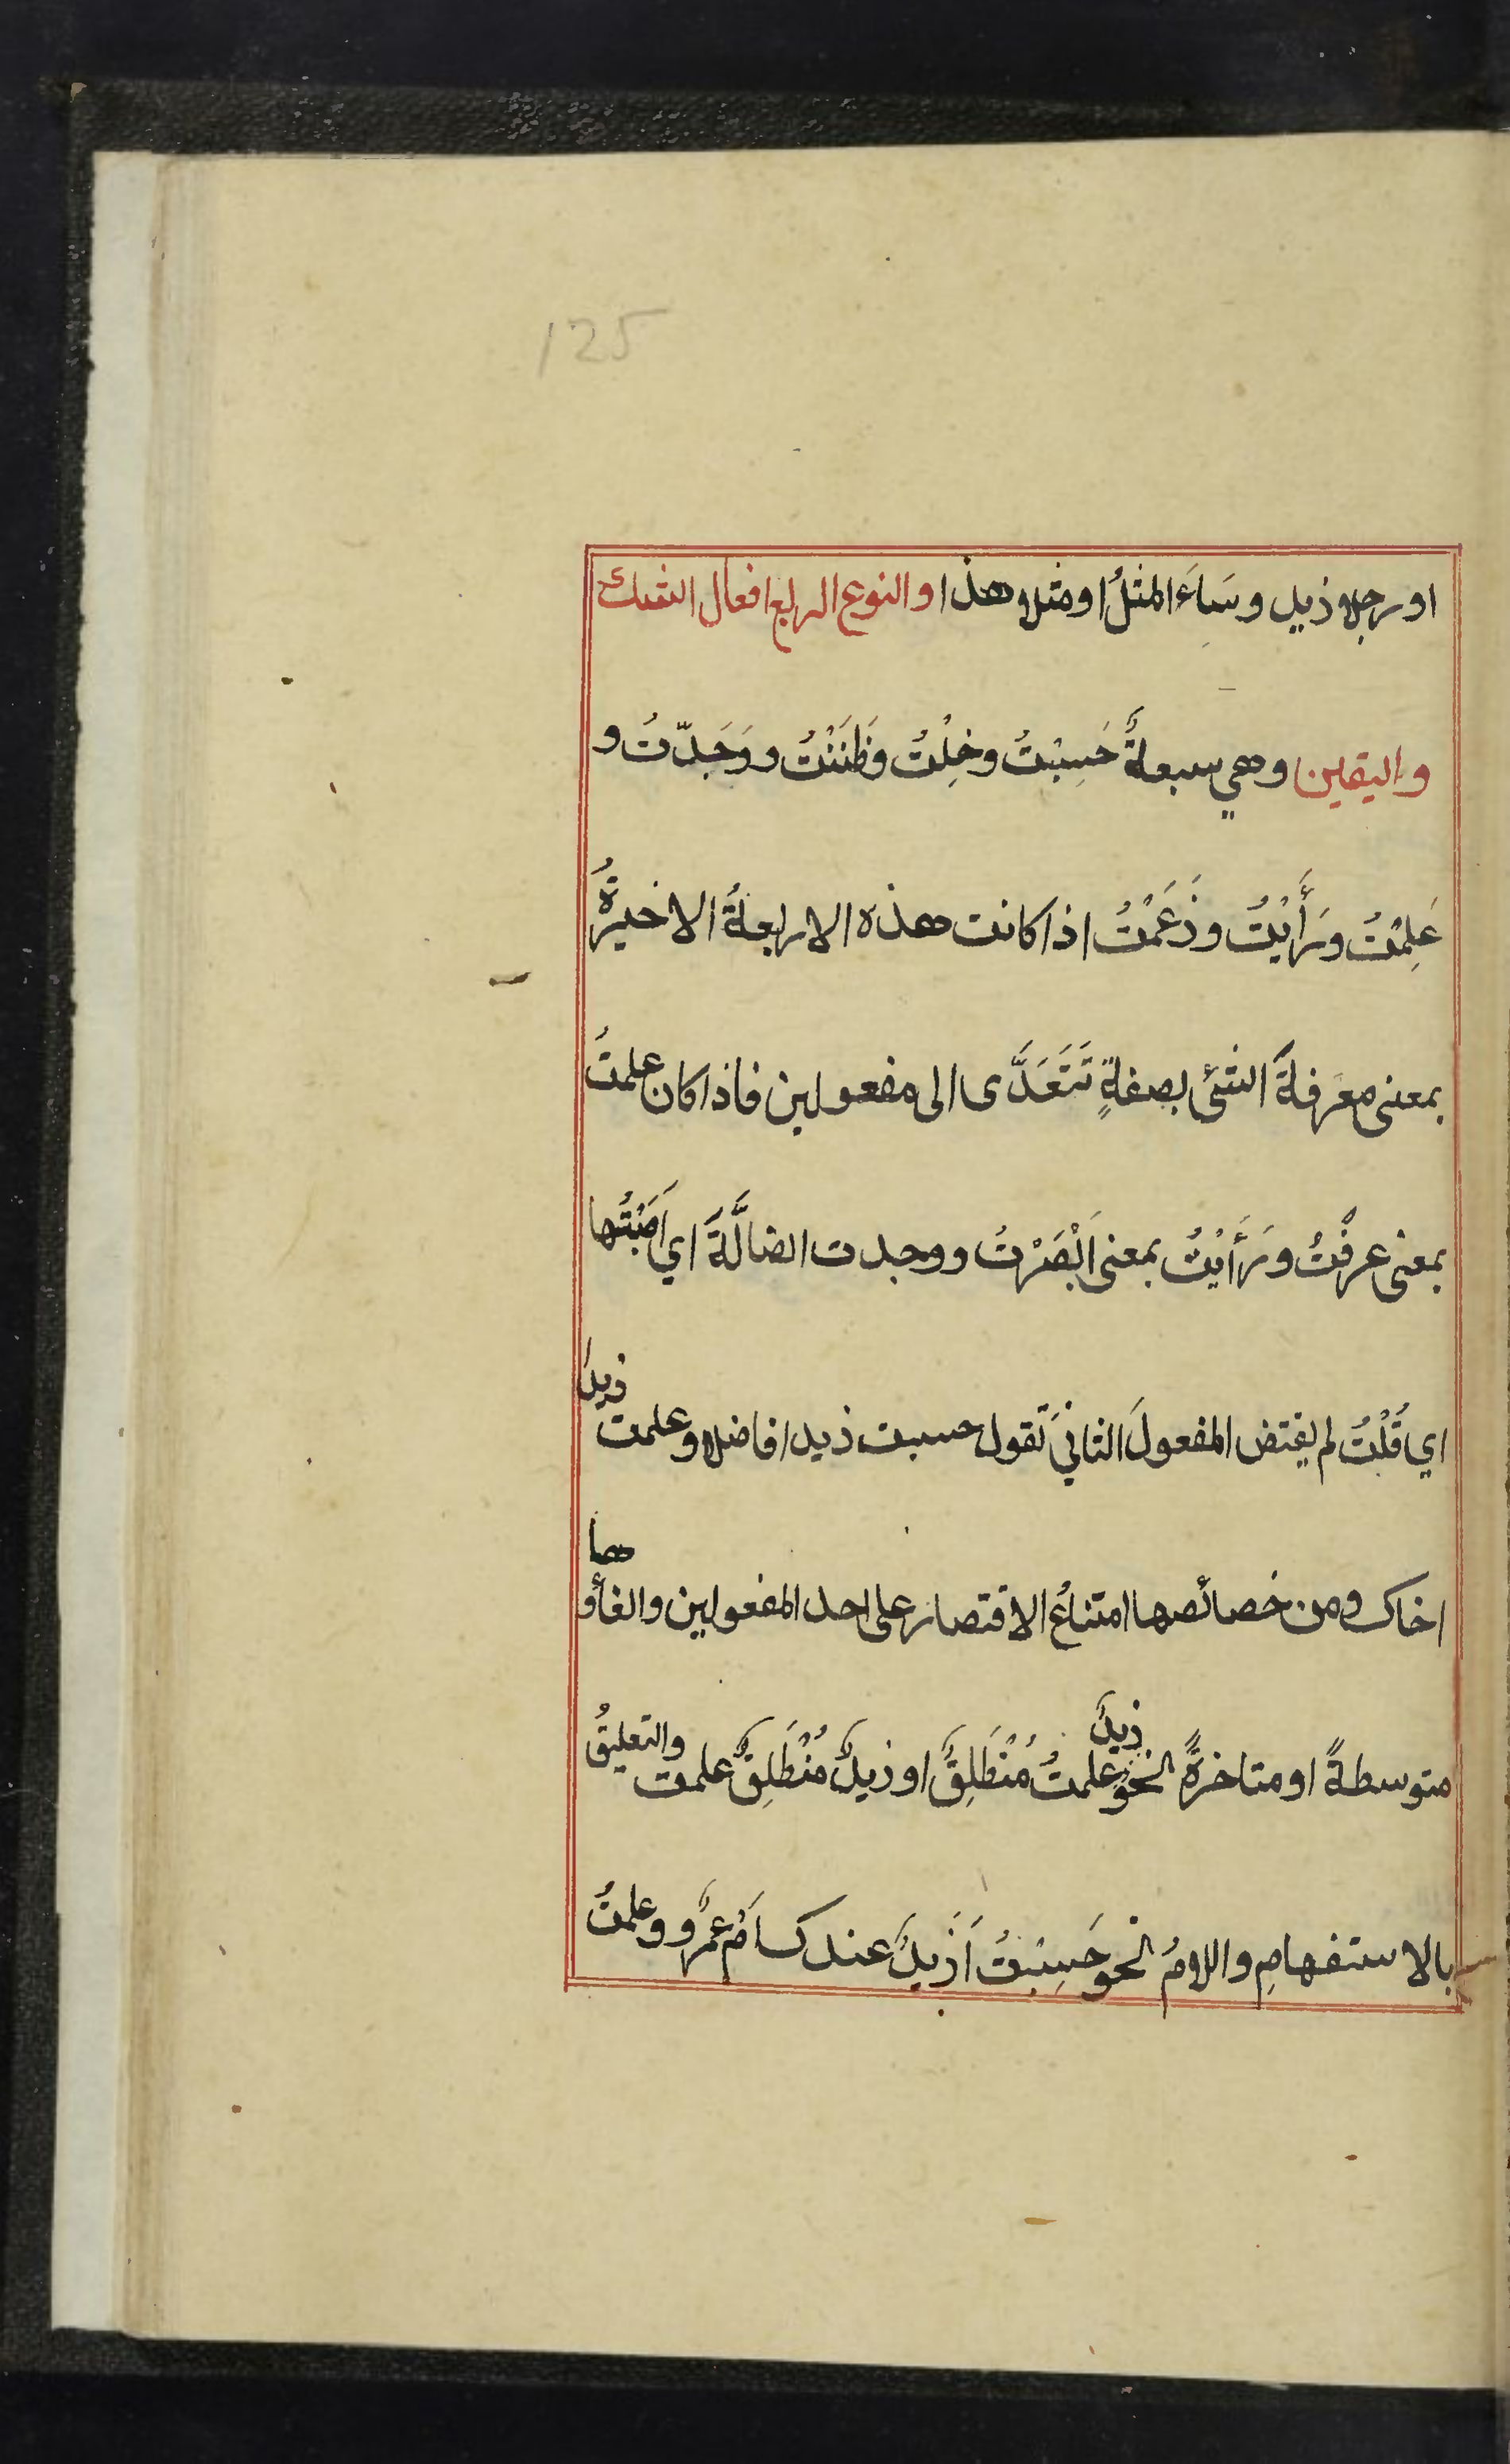 125
او رجلا ذيل وسَاءَ المثلُ او مثلا هذا والنوع الرابع افعال الشك
واليقين وهي سبعةٌ حَسِبْتُ وخِلْتُ وظَنَنْتُ ووَجَدّتُ و
عَلِمْتُ ورَأَيْتُ وذَعَمْتُ اذا كانت هذه الاربعةُ الاخيرةُ
بمعنى معَرفةَ الشئ بصفةٍ تَتَعَدَّى الى مفعولين فاذا كان علمتُ
بمعنى عرفْتُ ورَأَيْتُ بمعنى اَبْصَرْتُ ووجدت الضالَّةَ اي اَصَبْتُها
اي قُلْتُ لم يقتض المفعولَ الثانيَ تَقول حسبت ذيدا فاضلا وعلمت ذيدا
اخاك ومن خصائصها امتناعُ الاقتصار على احد المفعولين والغأوها
متوسطةً او متاخرةً نحو ذيدٌ علمتُ مُنْطَلِقٌ او ذيدٌ مُنْطَلِقٌ علمت والتعليقُ
بالاستفهامِ واللامُ نحو حَسِبْتُ اَذَيدٌ عندك اَمْ عمرٌو وعلمتُ